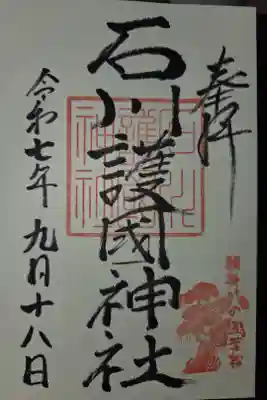 奉拝
石川護國神社
令和七年 九月十八日